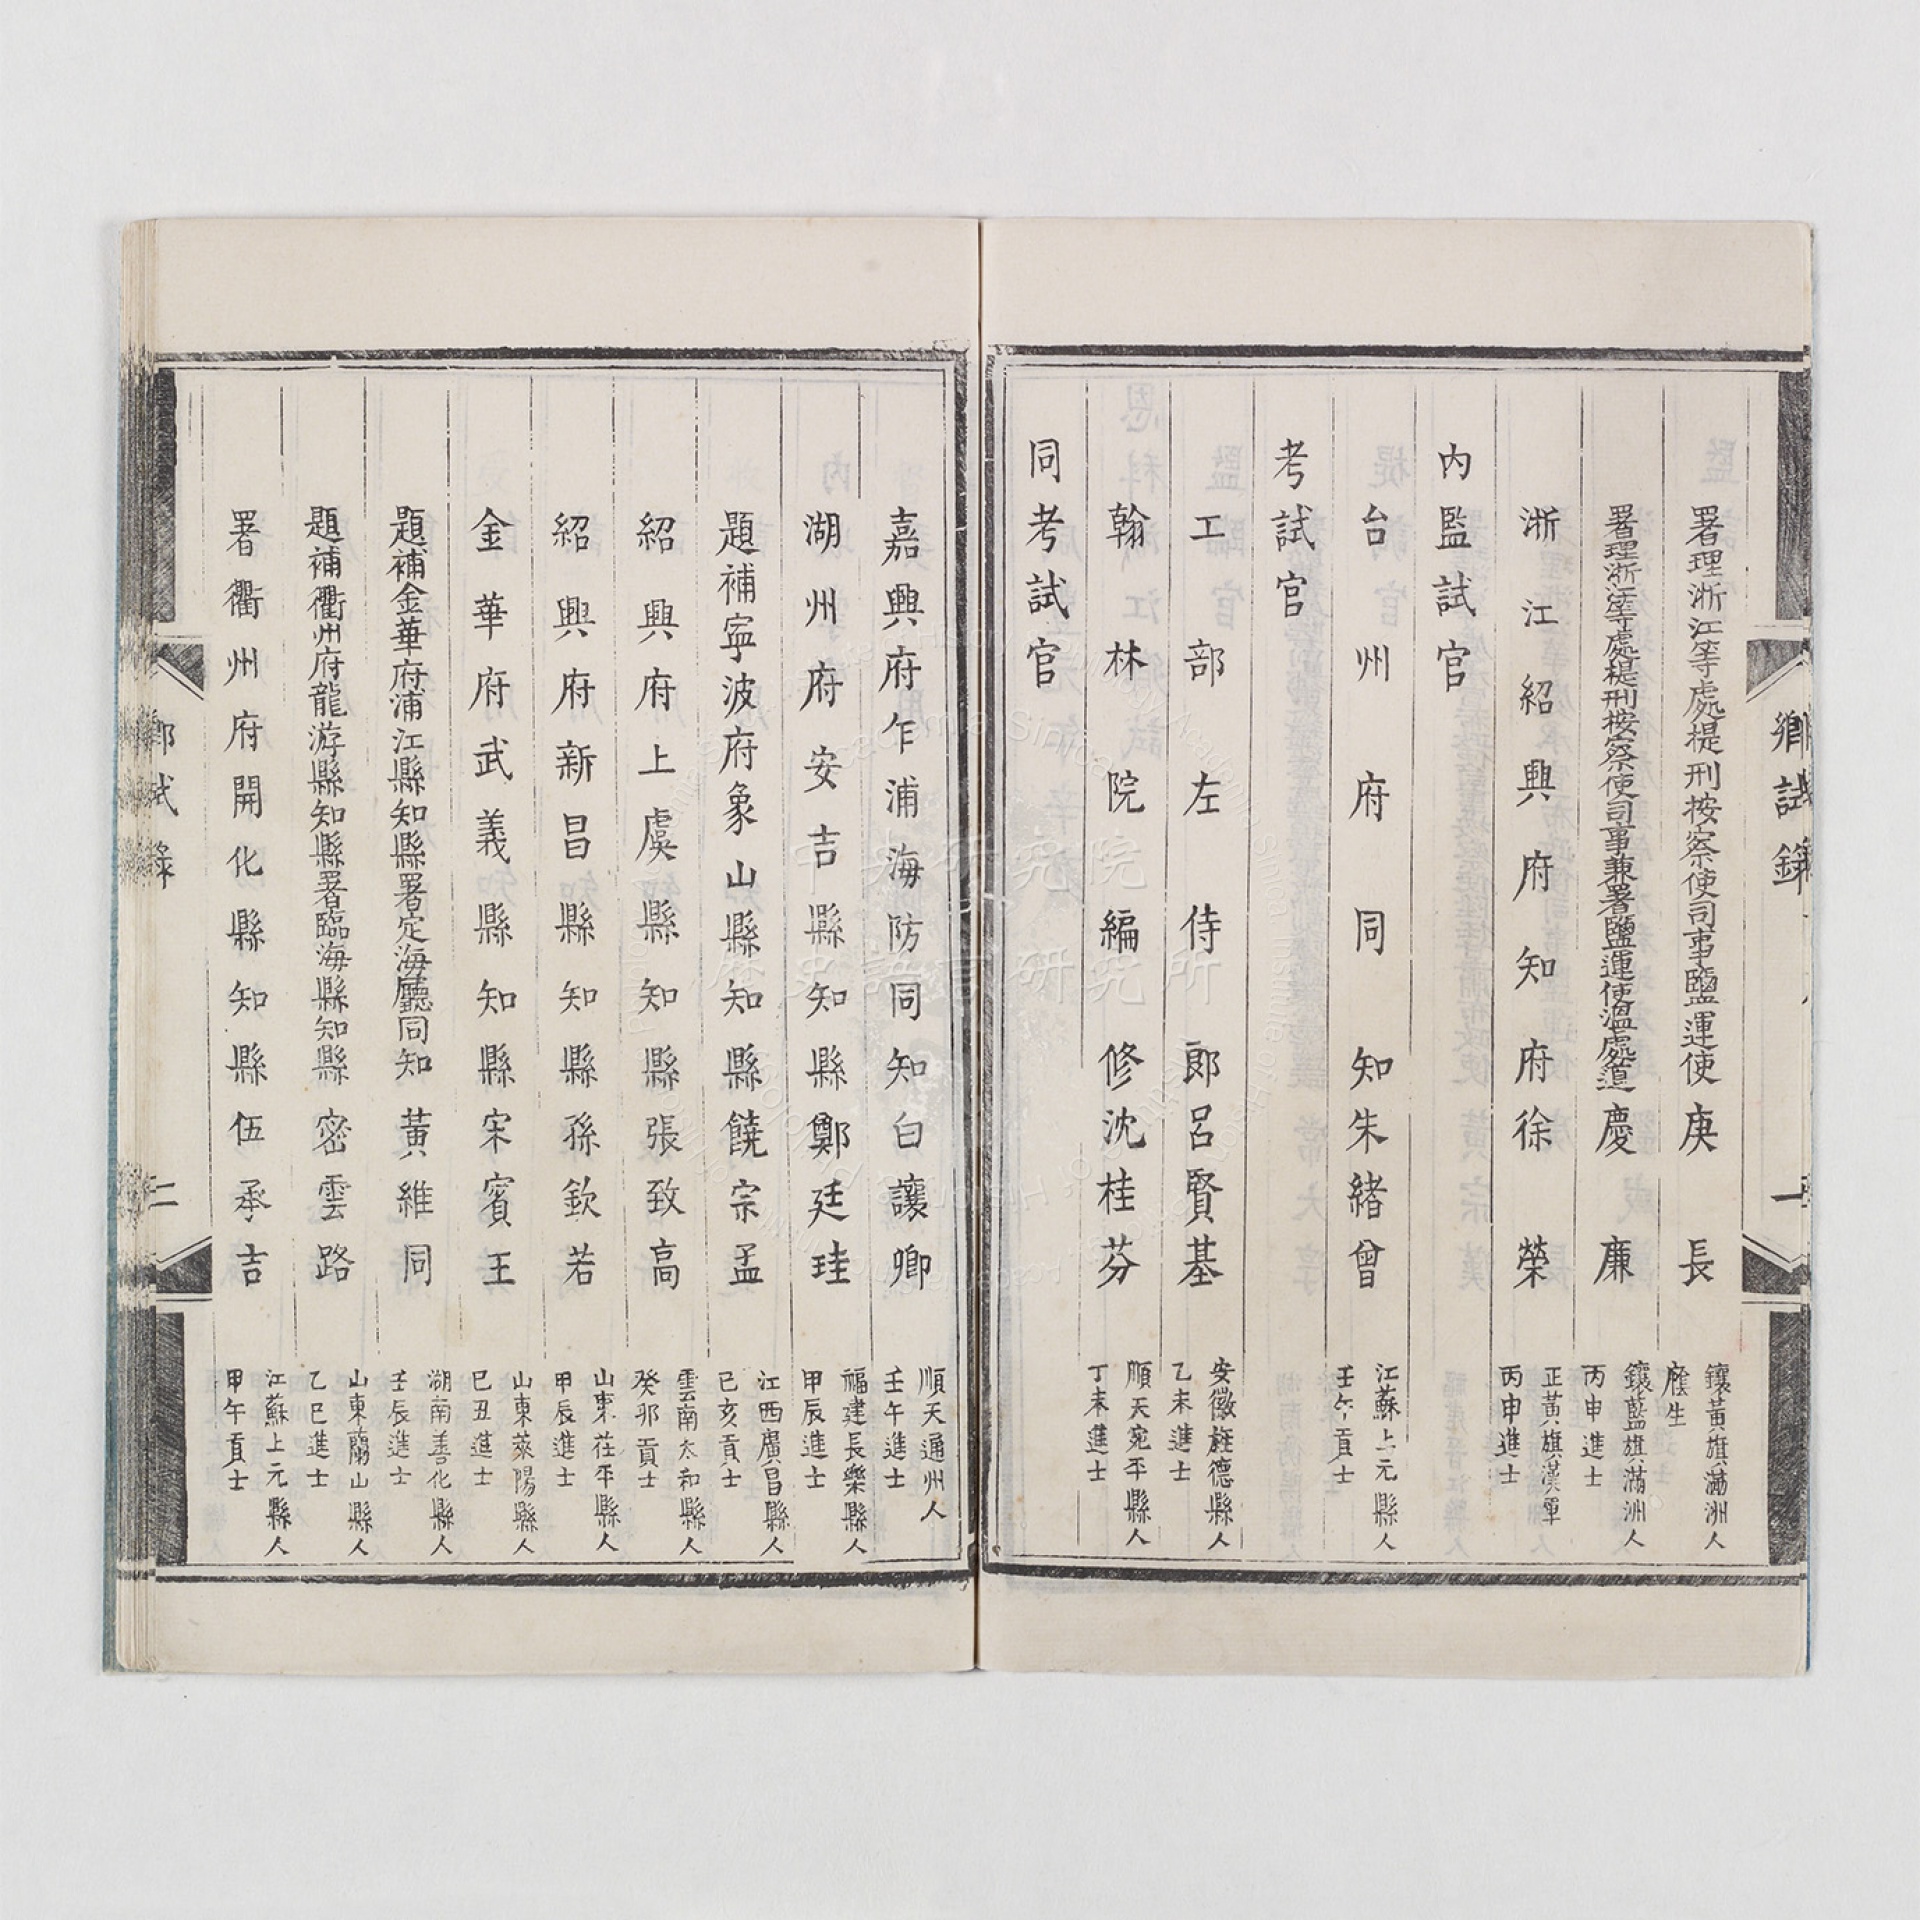 鄉試錄
一
署理浙江等處提刑按察使司事鹽運使庚長
鑲黃旗滿洲人
廕生
署理浙江等處提刑按察使司事兼署鹽運使溫處道慶廉
鑲藍旗滿洲人
丙申進士
浙江紹興府知府徐榮
正黃旗漢軍
丙申進士
內監試官
台州府同知朱緒曾
江蘇上元縣人
壬午貢士
考試官
工部左侍郎呂賢基
安徽旌德縣人
乙未進士
翰林院編修沈桂芬
順天宛平縣人
丁未進士
同考試官
嘉興府乍浦海防同知白讓卿
順天通州人
壬午進士
湖州府安吉縣知縣鄭廷珪
福建長樂縣人
甲辰進士
題補寍波府象山縣知縣饒宗孟
江西廣昌縣人
己亥貢士
紹興府上虞縣知縣張致高
雲南太和縣人
癸卯貢士
紹興府新昌縣知縣孫欽若
山東茌平縣人
甲辰進士
金華府武義縣知縣宋賓王
山東萊陽縣人
己丑進士
題補金華府浦江縣知縣署定海廳同知黃維同
湖南善化縣人
壬辰進士
題補衢州府龍游縣知縣署臨海縣知縣密雲路
山東蘭山縣人
乙巳進士
署衢州府開化縣知縣伍承吉
江蘇上元縣人
甲午貢士
二
中央研究院
歷史語言研究所